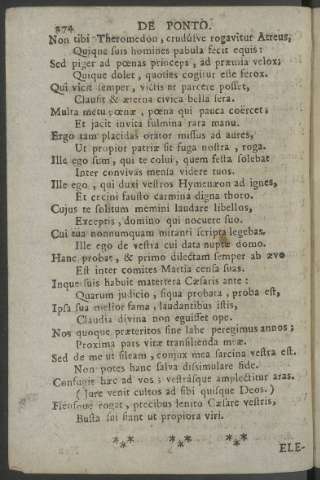 274 DE PONTO.
Non tibi Theromedon, crudúsve rogavitur Atreus,
Quique suis homines pabula fecit equis:
Sed piger ad pœnas princeps, ad præmia velox;
Quique dolet, quoties cogitur esse ferox.
Qui vicit semper, victis ut parcere posset,
Clausit & æterna civica bella sera.
Multa metu pœnæ, pœna qui pauca coërcet;
Et jacit invita fulmina rara manu.
Ergo tam placidas orator missus ad aures,
Ut propior patriæ sit fuga nostra, roga.
Ille ego sum, qui te colui, quem festa solebat
Inter convivas mensa videre tuos.
Ille ego, qui duxi vestros Hymenæon ad ignes,
Et cecini fausto carmina digna thoro.
Cujus te solitum memini laudare libellos,
Exceptis, domino qui nocuere suo.
Cui tua nonnumquam miranti scripta legebas,
Ille ego de vestra cui data nupta domo.
Hanc probat, & primo dilectam semper ab ævo
Est inter comites Martia censa suas.
Inque suis habuit matertera Cæsaris ante:
Quarum judicio, siqua probata, proba est,
Ipsa sua melior fama, laudantibus istis,
Claudia divina non eguisset ope.
Nos quoque præteritos sine labe peregimus annos;
Proxima pars vitæ transilienda meæ.
Sed de me ut sileam, conjux mea sarcina vestra est.
Non potes hanc salva dissimulare fide.
Confugit hæc ad vos; vestrásque amplectitur aras.
(Jure venit cultos ad sibi quisque Deos.)
Flensque rogat, precibus lenito Cæsare vestris,
Busta sui fiant ut propiora viri.
*** *** ***
ELE-